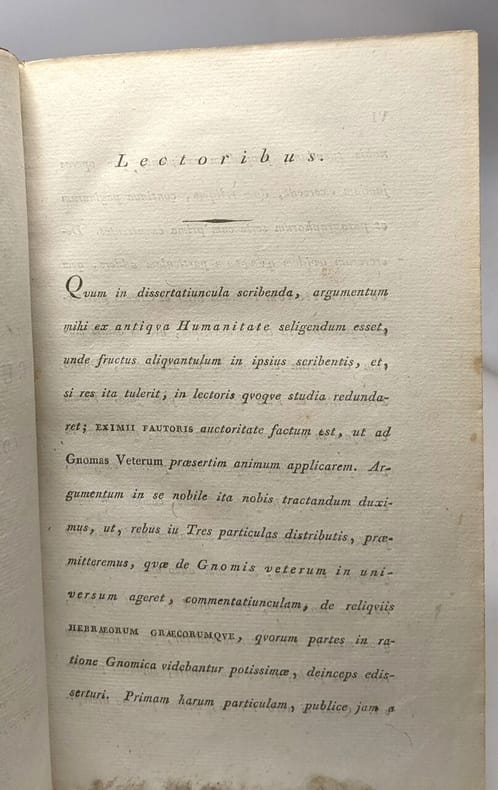 Lectoribus.
Qvum in dissertatiuncula scribenda, argumentum
mihi ex antiqva Humanitate seligendum esset,
unde fructus aliqvantulum in ipsius scribentis, et,
si res ita tulerit, in lectoris qvoqve studia redunda-
ret; EXIMII FAUTORIS auctoritate factum est, ut ad
Gnomas Veterum præsertim animum applicarem. Ar-
gumentum in se nobile ita nobis tractandum duxi-
mus, ut, rebus iu Tres particulas distributis, præ-
mitteremus, qvæ de Gnomis veterum in uni-
versum ageret, commentatiunculam, de reliqviis
HEBRÆORUM GRÆCORUMQVE, qvorum partes in ra-
tione Gnomica videbantur potissimæ, deinceps edis-
serturi. Primam harum particulam, publice jam a